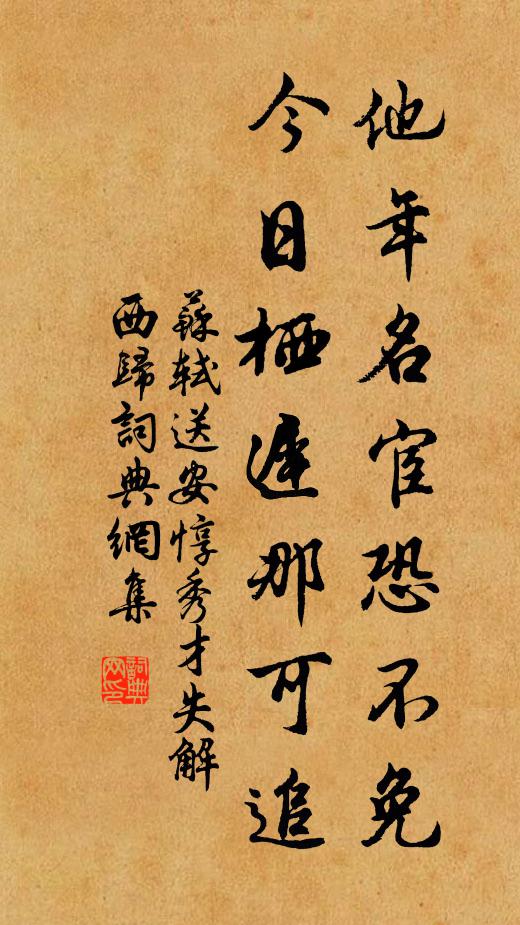 他年名宦恐不免
今日栖遲那可追
蘇軾送安惇秀才失解
西歸詞典網集
詞典
网印